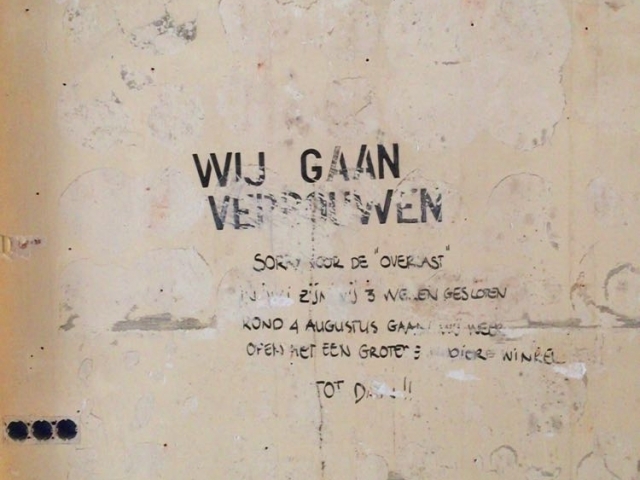 WIJ GAAN
VERBOUWEN
SORRY VOOR DE "OVERLAST"
IN JULI ZIJN WIJ 3 WEKEN GESLOTEN
ROND 4 AUGUSTUS GAAN WIJ WEER
OPEN MET EEN GROTERE WINKEL
TOT DAN!!